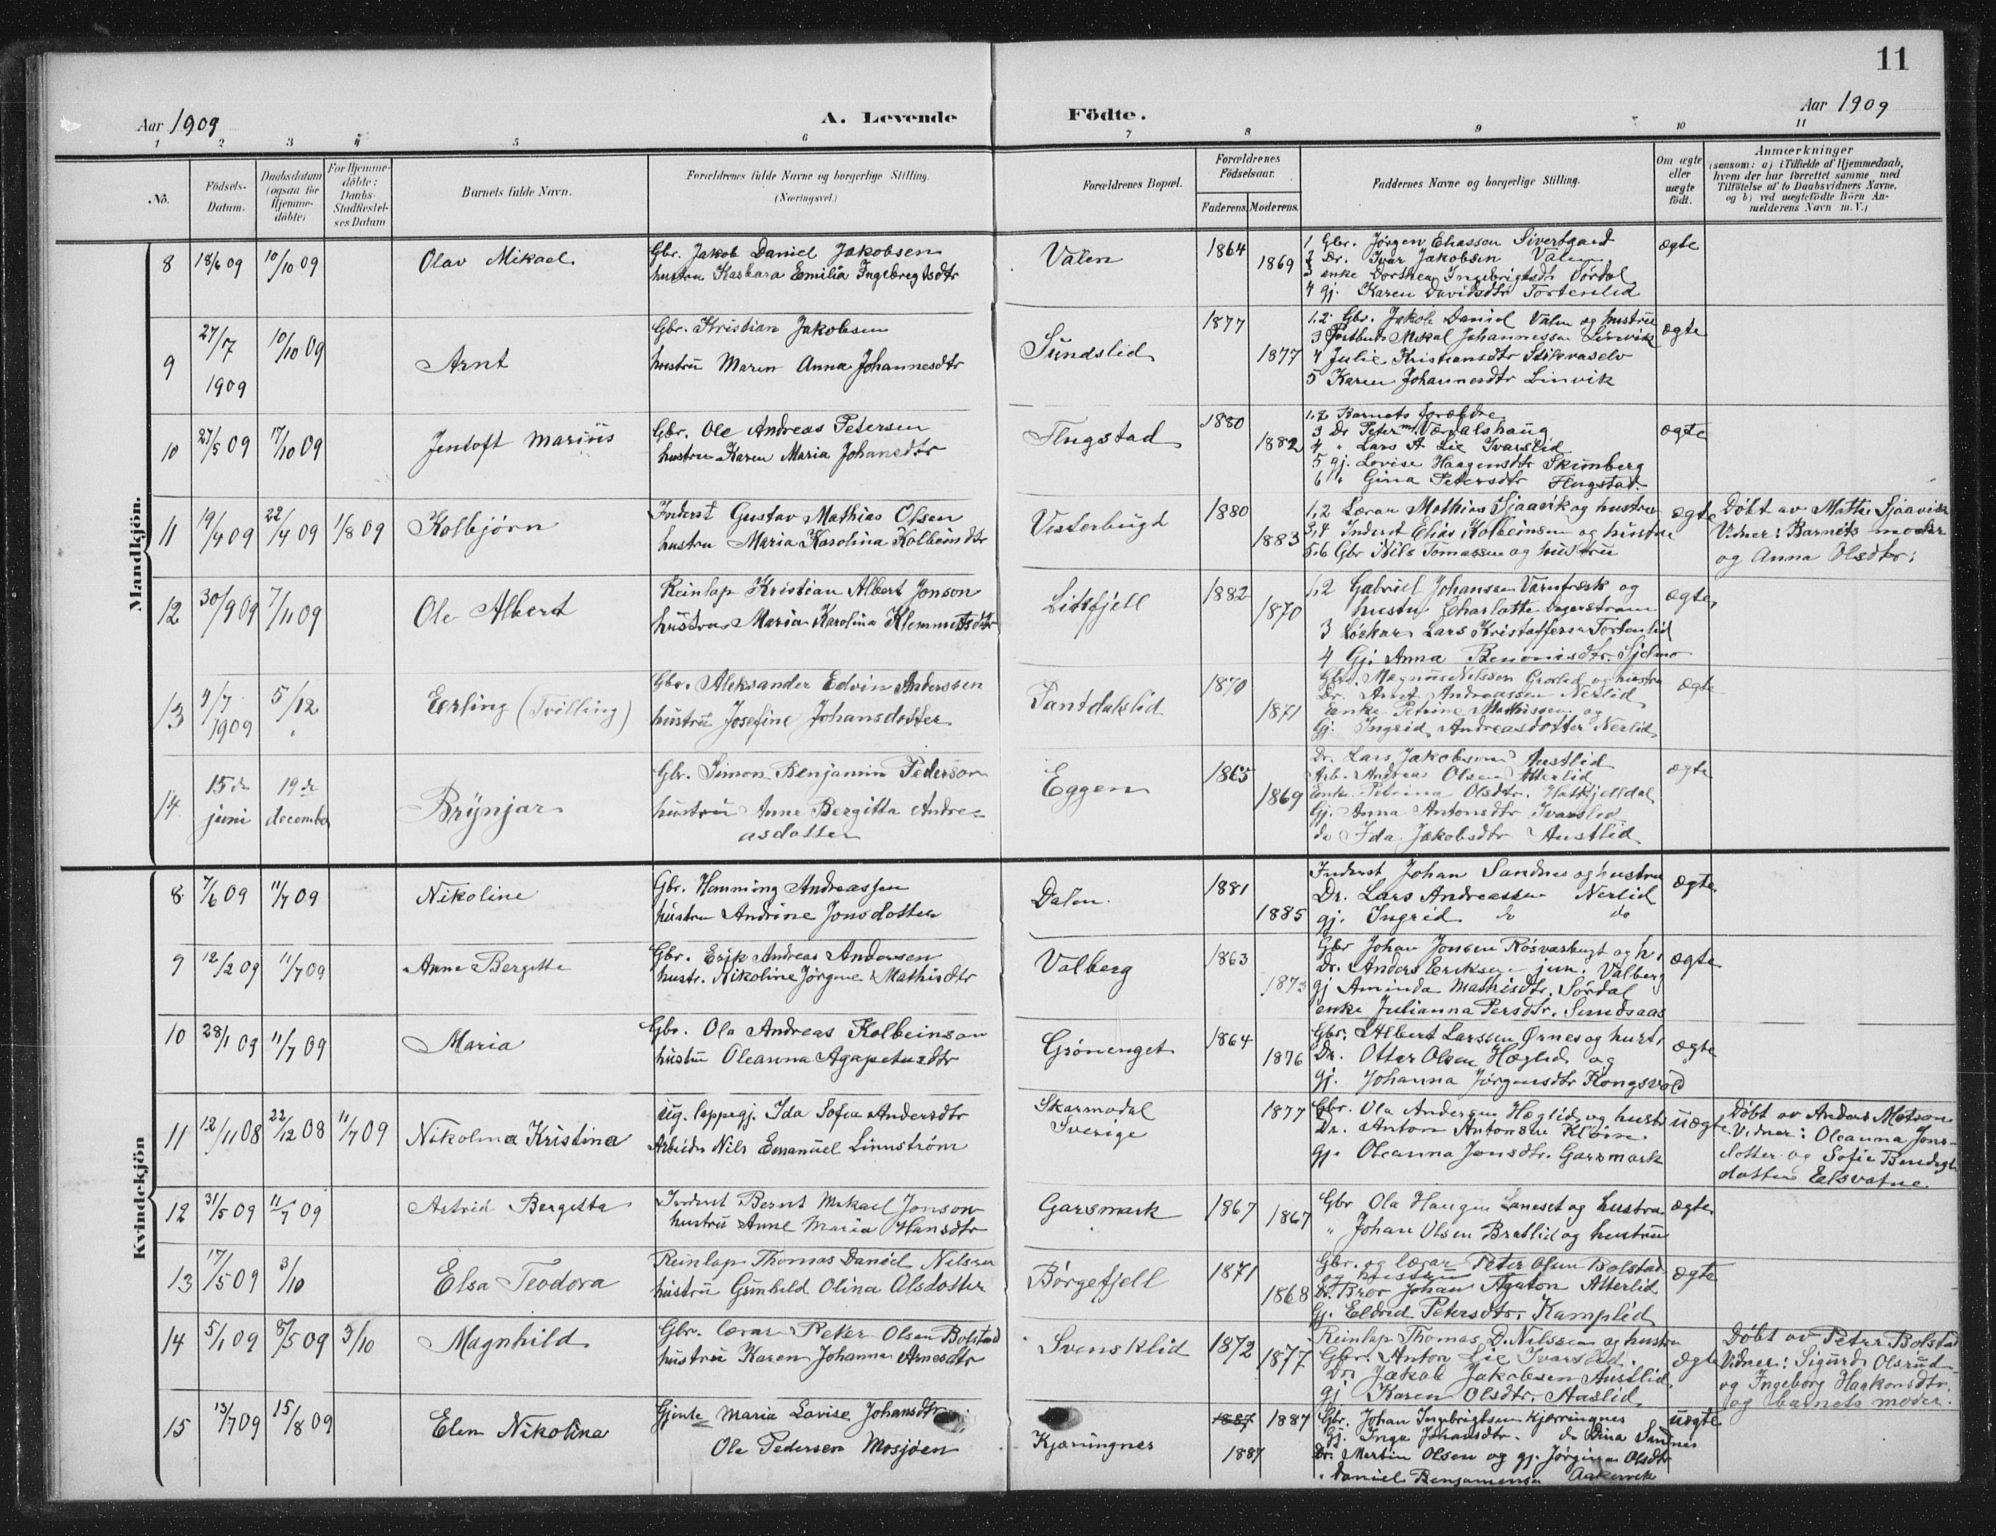 11
Aar 1909 A. Levende Födte. Aar 1909
1 2 3 4 5 6 7 8 9 10 11
No. Födsels-Datum. Daabsdatum (ogsaa for Hjemme-döbte) For Hjemme-döbte: Daabs-Stadfæstel-ses Datum Barnets fulde Navn. Forældrenes fulde Navne og borgerlige Stilling. (Næringsvei.) Forældrenes Bopæl. Forældrenes Födselsaar. Faderens. Moderens. Faddernes Navne og borgerlige Stilling. Om ægte eller uægte födt. Anmærkninger (saasom: a) i Tilfælde af Hjemmedaab, hvem der har forrettet samme, med Tilföielse af to Daabsvidners Navne, og b) ved uegtefödte Börn An-melderens Navn m. V.)
Mandkjön.
8 18/6 09 10/10 09 Olav Mikael Gbr. Jakob Daniel Jakobsen
hustru Kasbara Emilia Ingebregtsdtr
Valen 1864 1869
1 Gbr. Jørgen Eliassen Sivertgaard
2 Dr. Ivar Jakobsen Valen
3 enke Dorthea Ingebrigtsdtr Sørdal
4 gj. Karen Davidsdtr Tortenlid
ægte
9 27/7 1909 10/10 09 Arnt Gbr. Kristian Jakobsen
hustru Maren Anna Johannesdtr
Sundslid 1877 1877
1,2 Gbr. Jakob Daniel Valen og hustru
3 Postbud Mikal Johannessen Linvik
4 Julie Kristiansdtr Stikvaselv
5 Karen Johannesdtr Linvik
ægte
10 27/5 09 17/10 09 Jentoft Marius Gbr. Ole Andreas Petersen
hustru Karen Maria Johansdtr
Flugstad 1880 1882
1,2 Barnets forældre
3 Dr Peter M. Væralshaug
4 " Lars A Lie Ivarslid
5 gj. Lovise Haagensdtr Skumberg
6 " Gina Petersdtr Flugstad.
ægte
11 19/4 09 22/4 09 1/8 09 Kolbjørn Inderst Gustav Mathias Olsen
hustru Maria Karolina Kolbeinsdtr
Vesterbugt 1880 1883
1,2 Lærar Mathias Sjaavik og hustru
3,4 Inderst Elias Kolbeinsen og hustru
5,6 Gbr Nils Tomassen og hustru
ægte
Døbt av Mathis Sjaavik
Vidner: Barnets moder
og Anna Olsdtr.
12 30/9 09 7/11 09 Ole Albert Reinlap Kristian Albert Jonson
hustru Maria Karolina Klemmetsdtr
Litlfjell 1882 1870
1,2 Gabriel Johansen Varntræsk og
hustru Charlotte Dagerstrøm
3 Løskar Lars Kristoffersen Tortenlid
4 Gj. Anna Benonisdtr. Sjelmo
ægte
13 4/7 1909 5/12 Erling (Tvilling) Gbr. Aleksander Edvin Anderssen
hustru Josefine Johansdotter
Pantdalslid 1870 1871
Gbr. Magnus Nilssen Grovlid og hustru
Dr. Arnt Andreassen Nerlid
Enke Petrine Mathissen og
Gj. Ingrid Andreasdotter Nerlid
ægte
14 15de juni 19de december Brynjar Gbr. Simon Benjamin Pederson
hustru Anne Bergitta Andre-
asdotter
Eggen 1865 1869
Dr. Lars Jakobsen Austlid
Arb. Andreas Olsen Atterlid
Enke Petrina Olsdtr. Hatfjelldal
Gj. Anna Antonsdtr Ivarslid
do Ida Jakobsdtr Austlid
ægte
Kvindekjön
8 7/6 09 11/7 09 Nikoline Gbr. Hemming Andreassen
hustru Andrine Jonsdotter
Dalen 1881 1885
Inderst Johan Sandnes og hustru
Dr. Lars Andreassen Nerlid
gj. Ingrid do do
ægte
9 12/2 09 11/7 09 Anne Bergitte Gbr. Erik Andreas Andersen
hustr. Nikoline Jørgine Mathisdtr
Valberg 1863 1873
Gbr Johan Jonsen Røsvasbugt og h.
Dr. Anders Eriksen jun. Valberg
gj Aminda Mathisdtr. Sørdal
enke Julianna Persdtr. Sundsaas
ægte
10 28/1 09 11/7 09 Maria Gbr. Ola Andreas Kolbeinson
hustru Oleanna Agapetusdtr
Grönenget 1864 1876
Gbr. Albert Larssen Ørnes og hust.
Dr. Otter Olsen Hæglid og
gj. Johanna Jørgensdtr Kongsvold
ægte
11 12/11 08 22/12 08 11/7 09 Nikolina Kristina ug. lappegj. Ida Sofia Andersdtr
Arbeider Nils Emanuel Linnström
Skarmodal
Sverige
1877
Gbr. Ola Andersen Hæglid og hustr
Dr. Anton Antonsen Kløvn
gj. Oleanna Jonsdtr. Garsmark
uægte
Døbt av Anders Matson
Vidner: Oleanna Jons-
dotter og Sofie Bendigt
dotter Elsvatne.
12 31/5 09 11/7 09 Astrid Bergitta Inderst Bernt Mikael Jonson
hustru Anne Maria Hansdtr
Garsmark 1867 1867
Gbr Ola Haugen Laneset og hustru
" Johan Olsen Bratlid og hustru
ægte
13 17/5 09 3/10 Elsa Teodora Reinlap Thomas Daniel Nilsen
hustru Gunhild Olina Olsdotter
Børgefjell 1871 1868
Gbr. og lærar Peter Olsen Bolstad
og hustru
Dr. Bror Johan Agaton Atterlid
Gj. Eldrid Petersdtr. Kamplid
ægte
14 5/1 09 8/5 09 3/10 Magnhild Gbr. lærar Peter Olsen Bolstad
hustru Karen Johanna Arnesdtr
Svensklid 1872 1877
Reinlap Thomas D. Nilssen og hustru
Gbr. Anton Lie Ivarslid.
Dr. Jakob Jakobsen Austlid,
gj Karen Olsdtr. Aaslid
ægte
Døbt av Peter Bolstad
Vidner: Sigurd Olsrud
og Ingeborg Haakonsdtr.
og barnets moder.
15 13/7 09 15/8 09 Elen Nikolina Gjente Maria Lovise Johansdtr
Ole Pedersen Mosjøen
Kjærringnes 1887 1887 1887
Gbr. Johan Ingebrigtsen Kjærringnes
Gj. Inga Johansdtr. do Dina Sandnes
Dr. Martin Olsen og gj. Jørgina Olsdtr
" Daniel Benjaminsen Aakervik
uægte